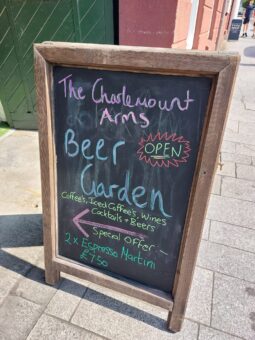 The Charlemount
Arms
Beer
OPEN
Garden
Coffee's, Iced Coffee's, Wines
Cocktails + Beers
Special Offer :-
2 x Espresso Martini
£7.50